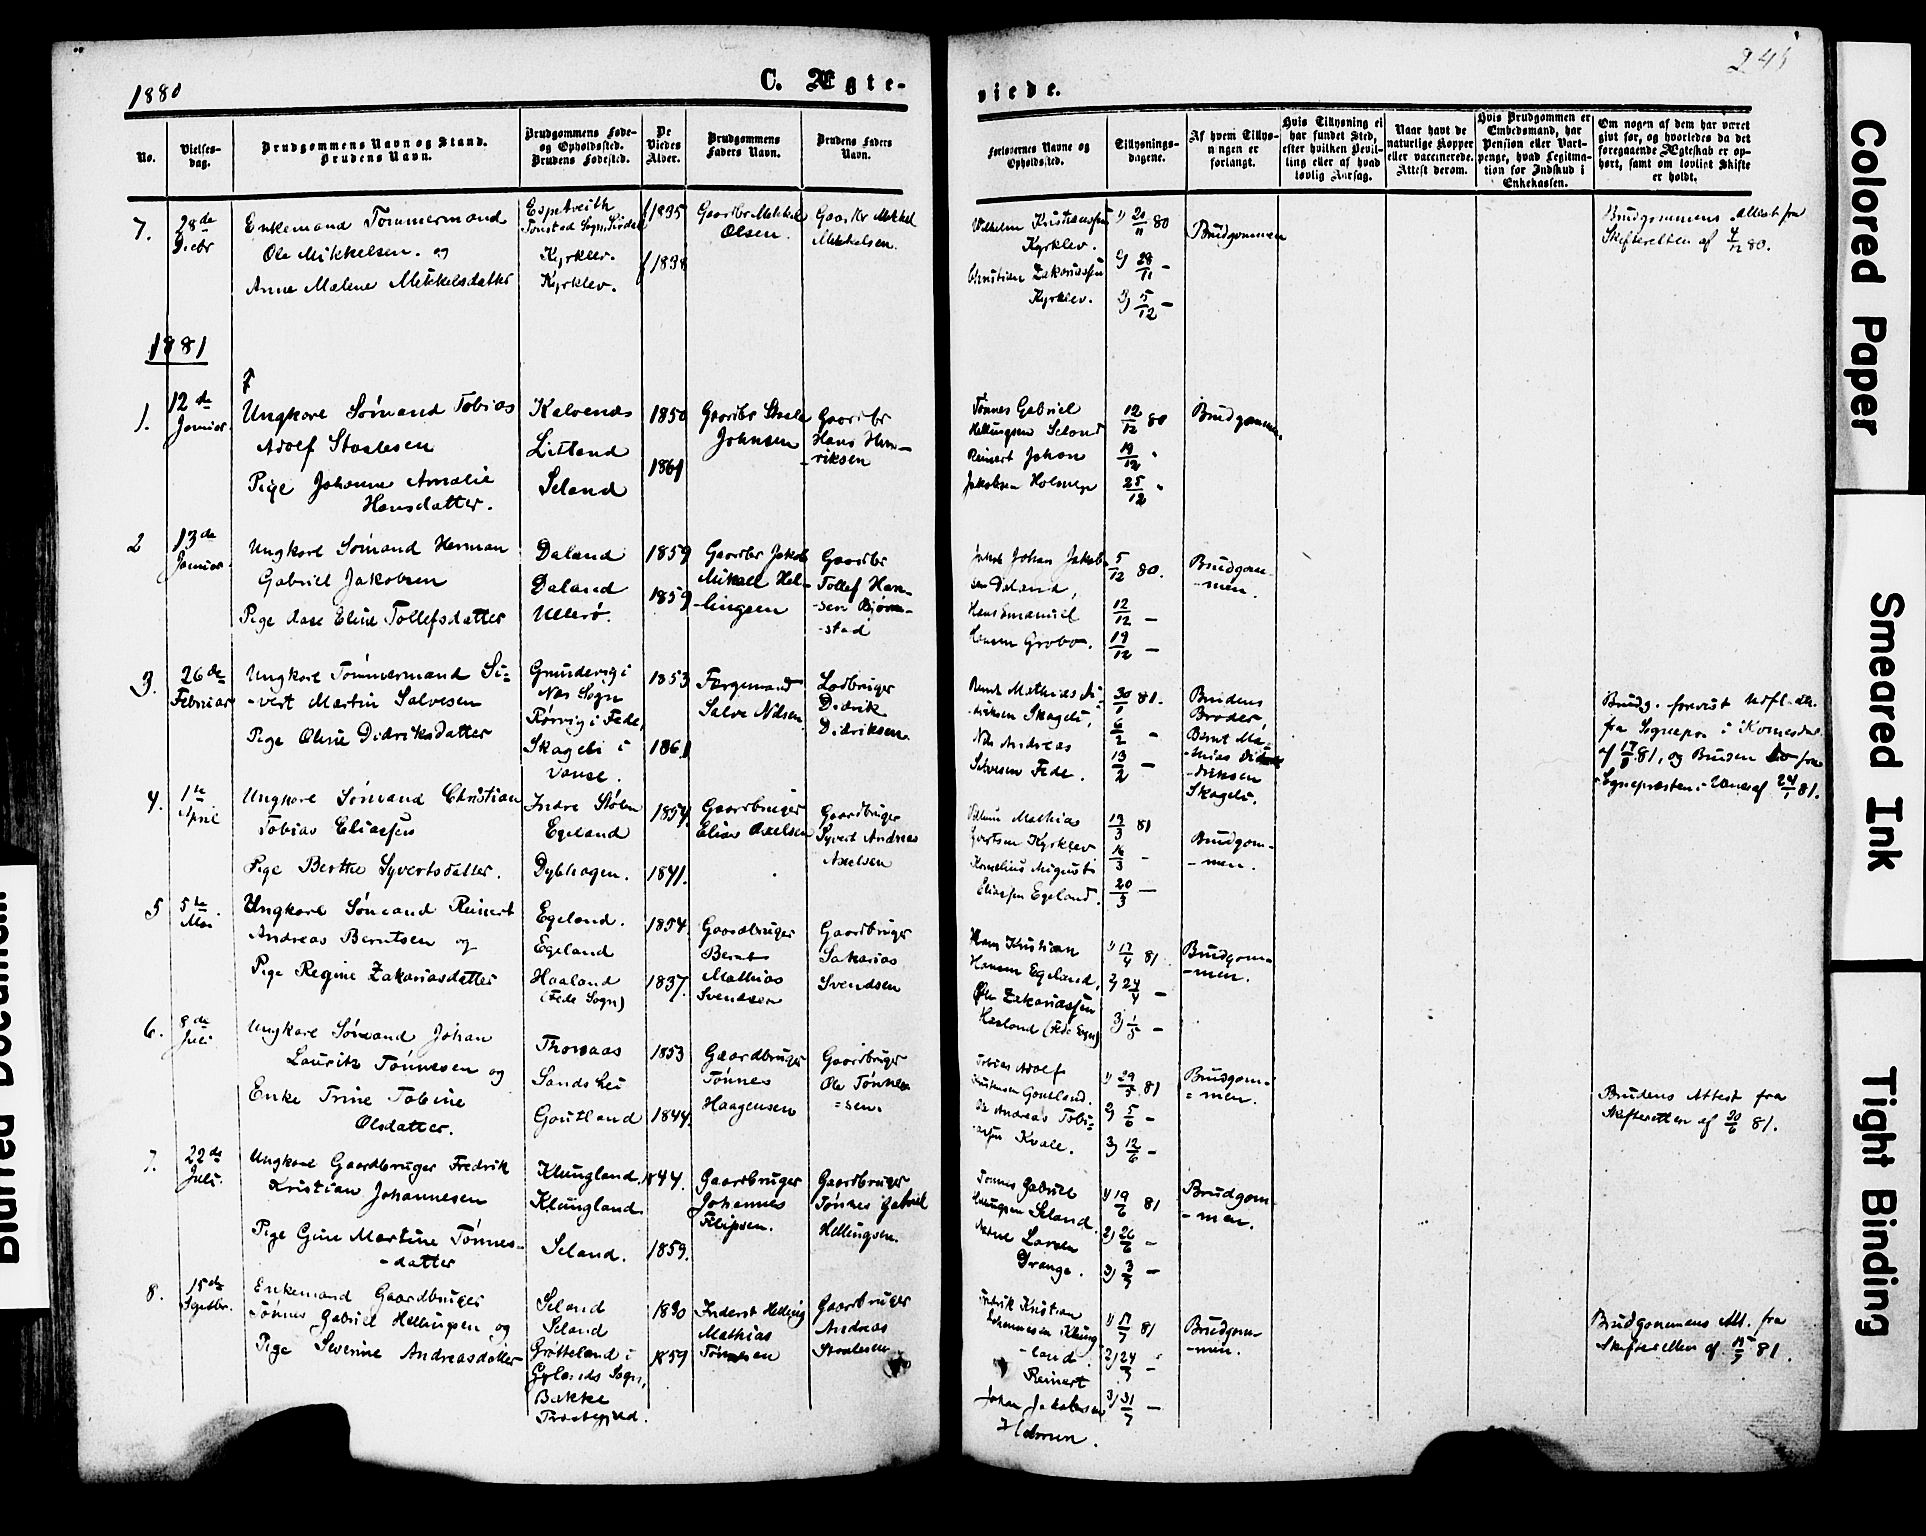 1880
C. Ægte-
viede.
No.
Vielses-
dag.
Brudgommens Navn og Stand.
Brudens Navn.
Brudgommens Føde-
og Opholdssted.
Brudens Fødested.
De
Viedes
Alder.
Brudgommens
Faders Navn.
Brudens Faders
Navn.
Forlovernes Navne og
Opholdssted.
Tillysnings-
dagene.
Af hvem Tillys-
ningen er
forlangt.
Hvis Tillysning ei
har fundet Sted,
efter hvilken Bevil-
ling eller af hvad
lovlig Aarsag.
Naar havt de
naturlige Kopper
eller vaccinerede.
Attest derom.
Hvis Brudgommen er
Embedsmand, har
Pension eller Vart-
penge, hvad Legitima-
tion for Indskud i
Enkekassen.
Om nogen af dem har været
givt før, og hvorledes da det
foregaaende Ægteskab er op-
hørt, samt om lovligt Skifte
er holdt.
7.
28de
Decbr
Enkemand Tømmermand
Ole Mikkelsen. og
Anne Malene Mikkelsdatter
Tonstad Sogn Sirdal
Kyrklev.
Kyrklev.
1835
1838
Gaardbr Mikkel
Olsen.
Gaardbr Mikkel
Mikkelsen.
Vilhelm Kristiansen
Kyrklev.
Christian Zakariassen
Kyrklev.
1) 20/11 80
2) 28/11 –
3) 5/12 –
Brudgommen
Brudgommens Attest fra
Skifteretten af 7/12 80.
1881
1.
12de
Januar.
Ungkarl Sømand Tobias
Adolf Staalesen
Pige Johanne Amalie
Hansdatter.
Kalvenes
Litland
Seland
1850
1861
Gaardbr Staale
Johnsen
Gaardbr
Hans Hen-
-riksen
Tønnes Gabriel
Hellingsen Seland
Reinert Johan
Jakobsen
12/12 80
19/12 "
25/12 "
Brudgommen.
2
13de
Januar.
Ungkarl Sømand Herman
Gabriel Jakobsen
Pige Aase Eline Tollefsdatter
Daland
Daland
Ullerø.
1859
1859
Gaardbr Jakob
Mikael Hel-
-lingsen
Gaardbr
Tollef Han-
-sen Bjørn-
-stad
Johan Jakob-
sen Daland,
Hans Emanuel
Hansen Grobo.
5/12 80.
12/12 –
19/12 –
Brudgom-
-men.
3.
26de
Februar
Ungkarl Tømmermand Si=
-vert Martin Salvesen
Pige Oline Didriksdatter
Grundevig i
Nes Sogn
Rørvig i Fede,
Skagebi i
Vanse.
1853
1861
Færgemand
Salve Nilsen
Lodbruger
Didrik
Didriksen.
Bernt Mathias Di-
-driksen Skagebi,
Nils Andreas
Salvesen Fede.
30/1 81.
6/2 "
13/2 –
Brudens
Broder,
Bernt Ma-
-thias Did
-driksen
Skagebi.
4.
1ste
April
Ungkarl Sømand Christian
Tobias Eliassen
Pige Berthe Syvertsdatter.
Indre Støle
Egeland
Dybhagen.
1854.
1841.
Gaardbruger
Elias Axelsen
Gaardbruger
Syvert Andreas
Axelsen
Mathias
Kyrklev
Kornelius August
Eliassen Egeland.
13/3 81
16/3 –
20/3 –
Brudgom-
-men.
5
5te
Mai
Ungkarl Sømand Reinert
Andreas Berntsen og
Pige Regine Zakariasdatter
Egeland.
Egeland
Haaland
(Fede Sogn)
1854.
1837.
Gaardbruger
Bernt
Mathias
Svendsen
Gaardbruger
Sakarias
Svendsen
Hans Kristian
Hansen Egeland,
Ole Zakariassen
Haaland (Fede Sogn)
1) 17/4 81
2) 24/4 –
3) 1/5 –
Brudgom-
-men.
6.
8de
Juli
Ungkarl Sømand Johan
Laurits Tønnesen og
Enke Trine Tobine
Olsdatter.
Thomaas
Sandshei
Goutland
1853
1844.
Gaardbruger
Tønnes
Haagensen
Gaardbruger
Ole Tønne-
=sen.
Tobias Adolf
Kristensen
Ole Andreas Tobi=
-assen Kvale.
1) 29/5 81
2) 5/6 –
3) 12/6 –
Brudgom-
=men.
Brudens Attest fra
Skifteretten af 30/6 81.
7.
22de
Juli.
Ungkarl Gaardbruger Fredrik
Kristian Johannesen
Pige Gine Martine Tønnes-
-datter
Klungland.
Klungland
Seland.
1844.
1859.
Gaardbruger
Johannes
Filipsen.
Gaardbruger
Tønnes Gabriel
Hellingsen.
Tønnes Gabriel
Hellingsen Seland.
Larsen
Drange.
1) 19/6 81
2) 26/6 –
3) 3/7 –
Brudgom-
-men.
8.
15de
Septbr.
Enkemand Gaardbruger
Tønnes Gabriel Hellingsen og
Pige Severine Andreasdatter
Seland
Seland
Grøtteland i
Gylands Sogn,
Bakke
Præstegjeld.
1830
1859
Inderst Helling
Mathias
Tønnesen
Gaardbruger
Andreas
Staalesen
Fredrik Kristian
Johannesen Klung
-land.
Reinert
Johan Jakobsen
Holmen.
1) 17/7 81
2) 24/7 –
3) 31/7 –
Brudgom-
-men.
Brudgommens Att. fra
Skifteretten af
Colored Paper
Smeared Ink
Tight Binding
Blurred Document